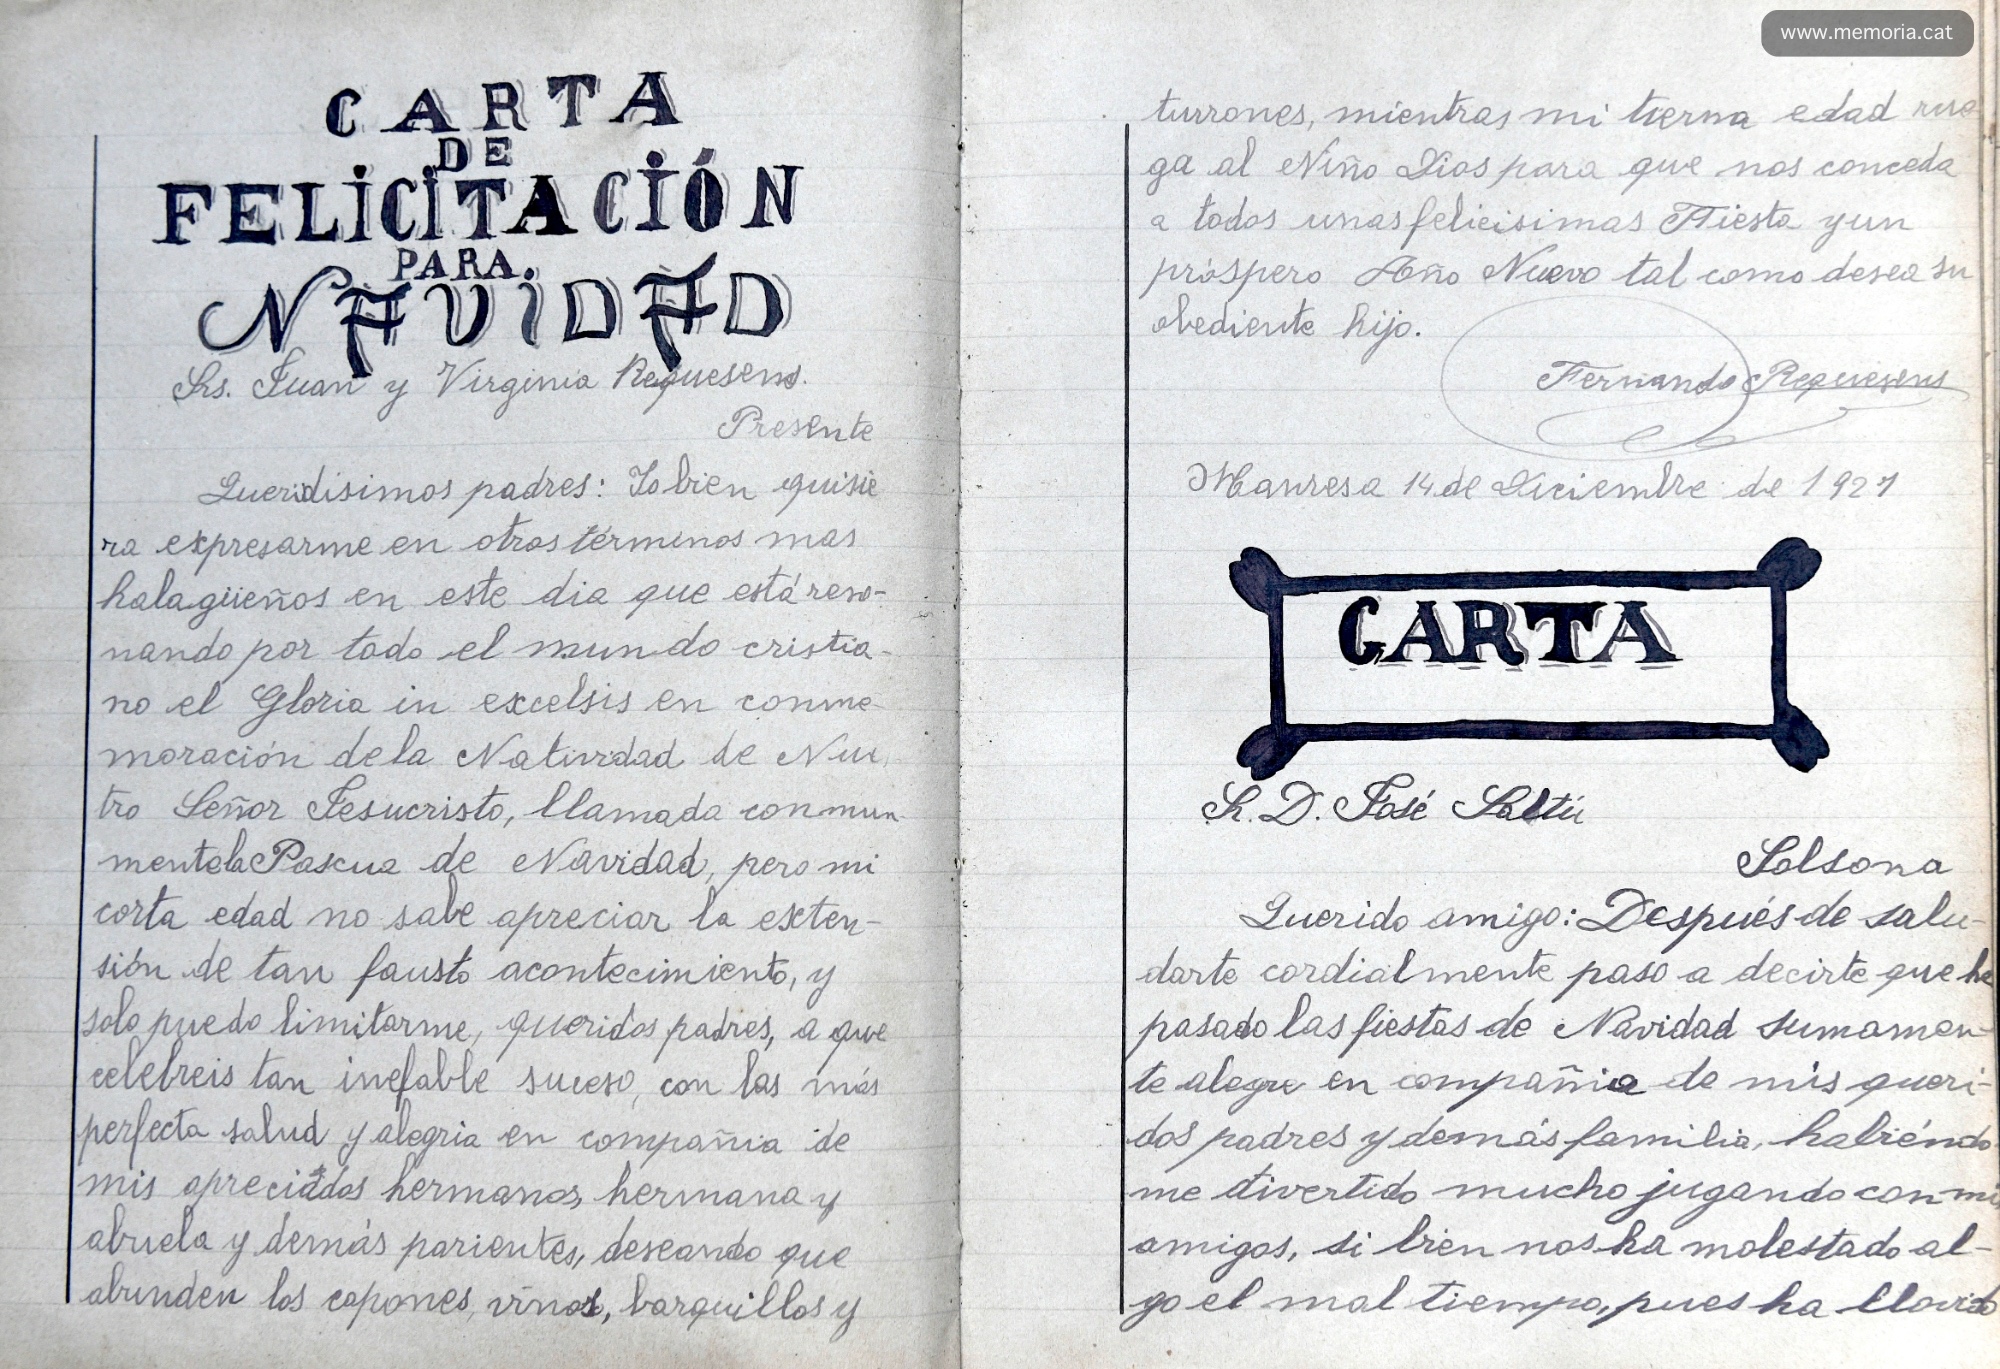 CARTA
DE
FELICITACIÓN
PARA.
NAVIDAD
Srs. Juan y Virginia Requesens.
Presente
Queridisimos padres: Yo bien quisie
ra expresarme en otros términos mas
halagüeños en este dia que está reso-
nando por todo el mundo cristia-
no el Gloria in excelsis en conme-
moración de la Natividad de Nue
tro Señor Jesucristo, llamada conmun-
mente la Pascua de Navidad, pero mi
corta edad no sabe apreciar la exten-
sión de tan fausto acontecimiento, y
solo puedo limitarme, queridos padres, a que
celebreis tan inefable suceso, con las más
perfecta salud y alegria en compañia de
mis apreciados hermanos, hermana y
abuela y demás parientes, deseando que
abunden los capones, vinos, barquillos y
www.memoria.cat
turrones, mientras mi tierna edad rue-
ga al Niño Dios para que nos conceda
a todos unas felicisimas Fiesta y un
próspero Año Nuevo tal como desea su
obediente hijo.
Fernando Requesens
Manresa 14 de Diciembre de 1927
CARTA
Sr. D. José Saltú
Solsona
Querido amigo: Después de salu-
darte cordialmente paso a decirte que he
pasado las fiestas de Navidad sumamen-
te alegre en compañia de mis queri-
dos padres y demás familia, habiéndo
me divertido mucho jugando con mis
amigos, si bien nos ha molestado al-
go el mal tiempo, pues ha llovido